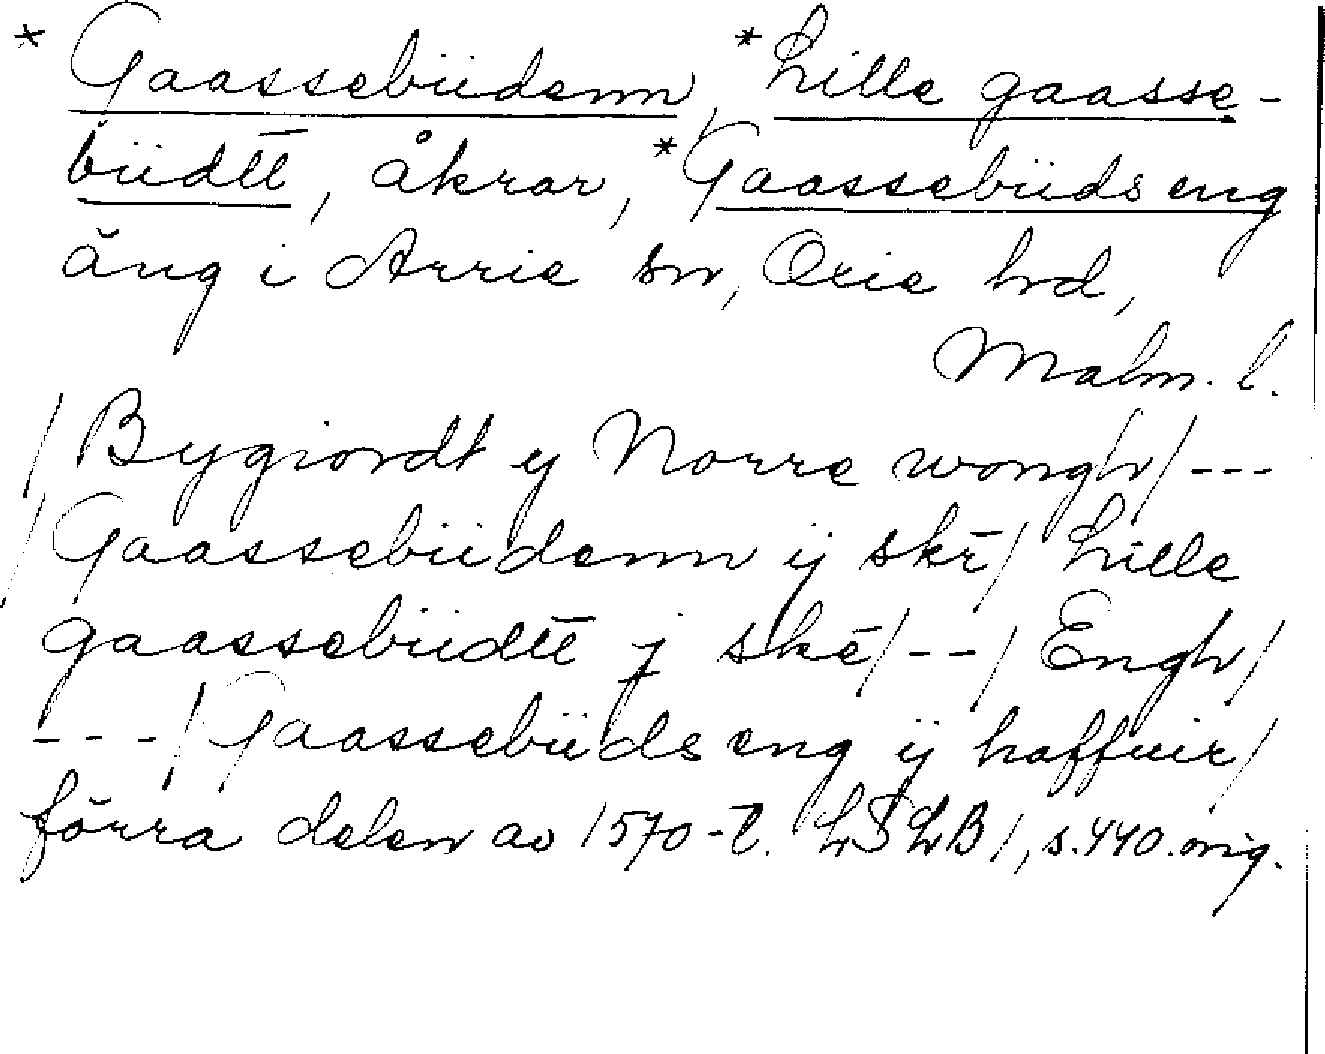 * Gaassebüdenn, * Lille gaasse-
büdtt, åkrar, * Gaassebüds eng
äng i Arrie sn, Oxie hd,
Malm. l.
/ Bygiordt y Norre wongh / ---
/ Gaassebüdenn ij skē / Lille
gaassebüdtt j skē / -- / Engh /
--- / Gaassebüds eng ÿ haffuir /
förra delen av 1570-t. LSLB 1, s. 440. orig.